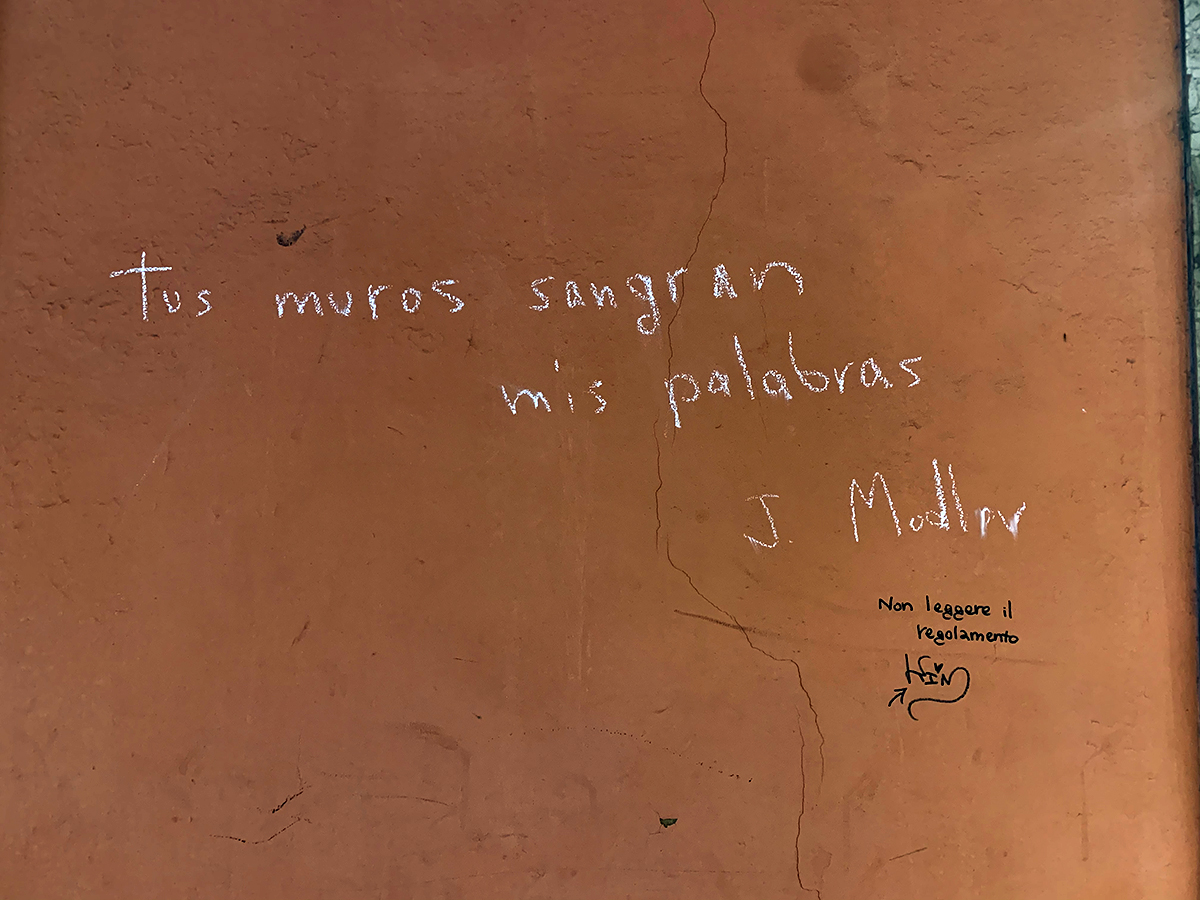 Tus muros sangran
mis palabras
J.
Non leggere il
regolamento